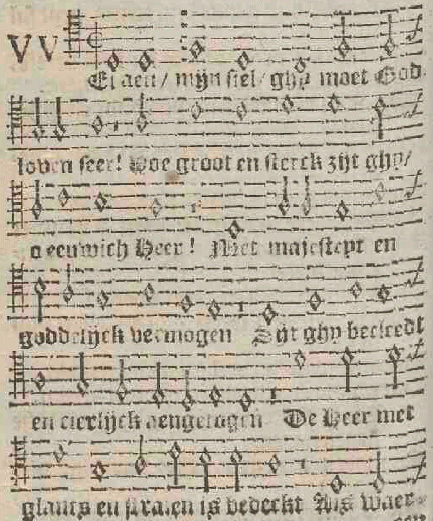 VVEl aen/ mijn siel/ ghy moet God
loven seer! Hoe groot en sterck zijt ghy/
o eeuwich Heer! Met majesteyt en
goddelijck vermogen Zijt ghy becleedt
en cierlijck aengetogen De Heer met
glants en stralen is bedeckt Als waer-